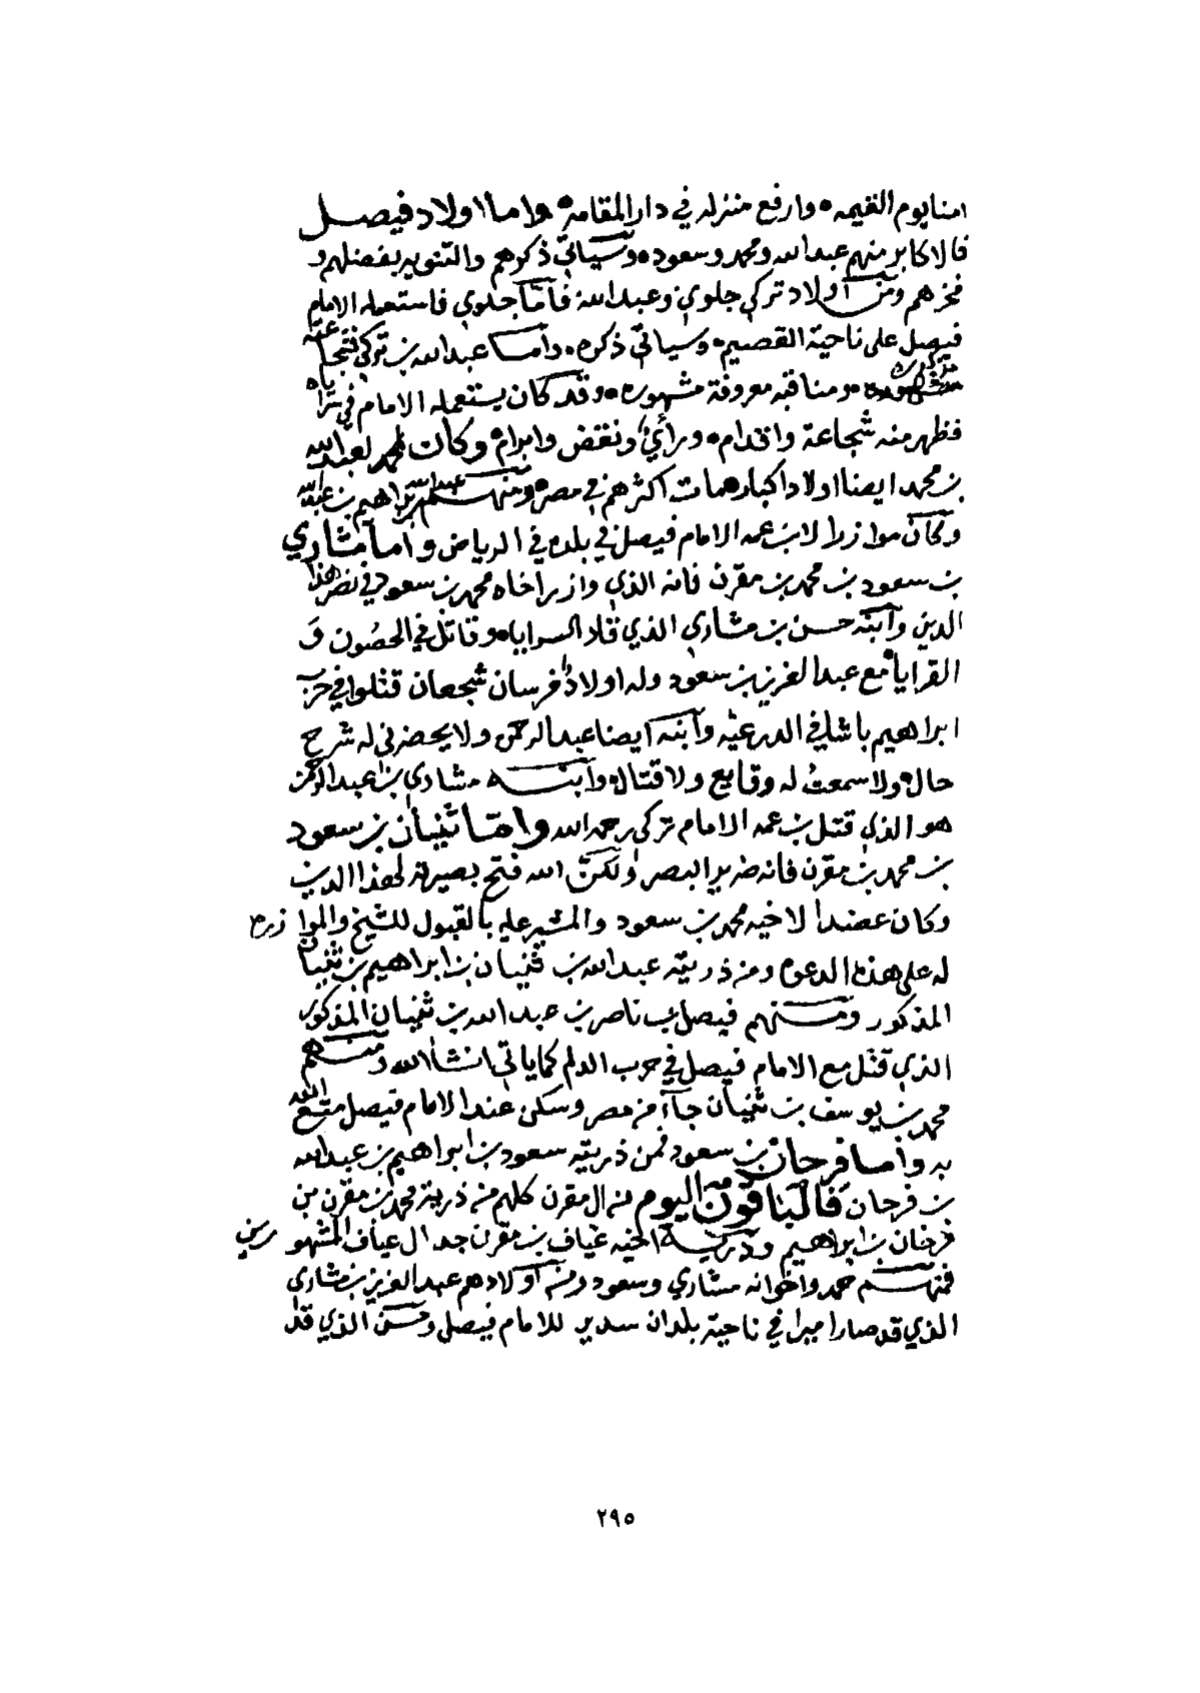 امنا يوم القيمه ٥ وارفع منزله في دار المقامه ٥ واما اولاد فيصل
فالاكابر منهم عبدالله ومحمد وسعود ٥ وسياتي ذكرهم والتنويه بفضلهم و
فخرهم ومن اولاد تركي جلوي وعبدالله فأمّا جلوي فاستعمله الامام
فيصل على ناحية القصيم ٥ وسياتي ذكره ٥ وأما عبدالله بن تركي فشجاعته
مذكوره ٥ ومناقبه معروفة مشهوره ٥ وقد كان يستعمله الامام في سراياه
فظهر منه شجاعة واقدام ٥ ورأي ونقض وابرام ٥ وكان لمحمد لعبدالله
بن محمد ايضا اولادا كبار مات اكثرهم في مصر ٥ ومنهم عبدالله بن ابراهيم بن عبدالله
وكان موازرا لابن عمه الامام فيصل في بلده في الرياض وأما مشاري
بن سعود بن محمد بن مقرن فانه الذي وازر اخاه محمد بن سعود في نصر هذا
الدين وابنه حسن بن مشاري الذي قاد السرايا ٥ وقاتل في الحصُون وَ
القرايا ٥ مع عبدالعزيز بن سعود وله اولاد فرسان شجعان قتلوا في حرب
ابراهيم باشا في الدرعيّه وابنه ايضا عبدالرحمن ولا يحضرني له شرح
حال ٥ ولا سمعتُ له وقايع ولا قتال ٥ وابنه مشاري بن عبدالرحمن
هو الذي قتل بن عمه الامام تركي رحمه الله واما ثنيان بن سعود
بن محمد بن مقرن فانه ضرير البصر ولكنّ الله فتح بصيرته لهذا الدين
وكان عضدا لاخيه محمد بن سعود والمشير عليه بالقبول للشيخ والموازره
له على هذه الدعوه ومن ذريته عبدالله بن ثنيان بن ابراهيم بن ثنيان
المذكور ومنهم فيصل بن ناصر بن عبدالله بن ثنيان المذكور
الذي قتل مع الامام فيصل في حرب الدلم كما ياتي انشاالله ومنهم
محمد بن يوسف بن ثنيان جاء من مصر وسكن عند الامام فيصل متع الله
به وأما فرحان بن سعود فمن ذريته سعود بن ابراهيم بن عبدالله
بن فرحان فالباقون اليوم من ال مقرن كلهم من ذرية محمد بن مقرن من
فرحان بن ابراهيم وذرية اخيه عياف بن مقرن جد ال عياف المشهورين
فمنهم حمد واخوانه مشاري وسعود ومن اولادهم عبدالعزيز بن مشاري
الذي قد صار اميرا في ناحية بلدان سدير للامام فيصل وحسن الذي قد
٢٩٥